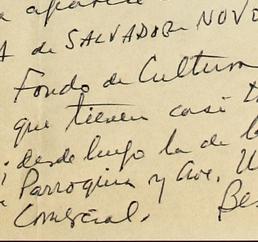 a aparece
A de SALVADOR NOVO
Fondo de Cultura
que tienen casi
; desde luego la de l
Parroquia y Ave. U
Comercial. Bes